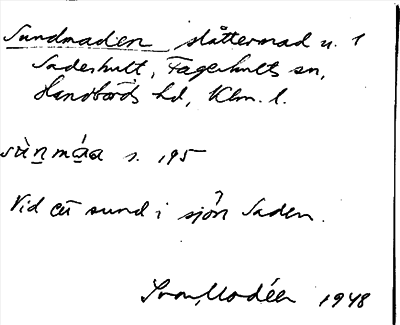 Sundmaden slåttermad u. 1
Sadeshult, Fagerhults sn,
Handbörds hd, Klm. l.
sùnmáa s. 195
Vid ett sund i sjön Saden.
Ivar Modéer 1948